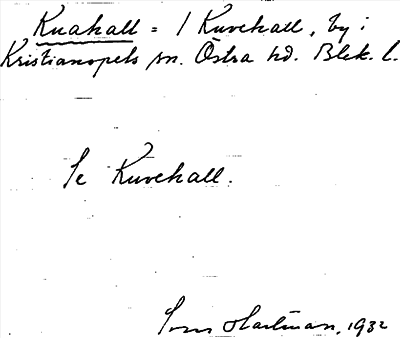 Kuahall = / Kuvehall, by i
Kristianopels sn. Östra hd. Blek. l.
Se Kuvehall.
Hartman, 1932